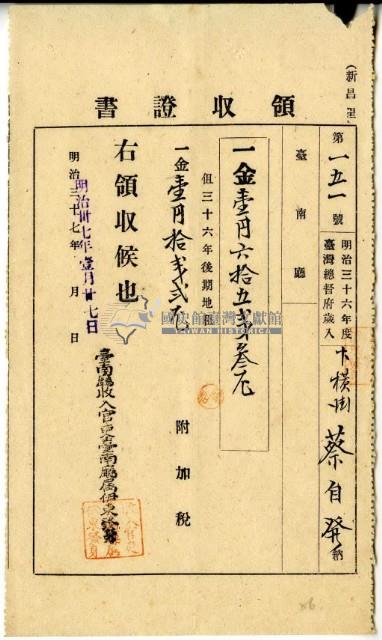 (新昌里
領收證書
第一五一號 明治三十六年度臺灣總督府歲入 下橫街 蔡自發 納
臺南廳
一金壹円六拾五錢叁厘
但三十六年後期地租
一金壹円拾錢弍厘 附加稅
右領收候也
明治三十七年 月 日
明治卅七年壹月廿七日
臺南廳收入官吏臺南廳屬伊東
國史館臺灣文獻館
TAIWAN HISTORICA